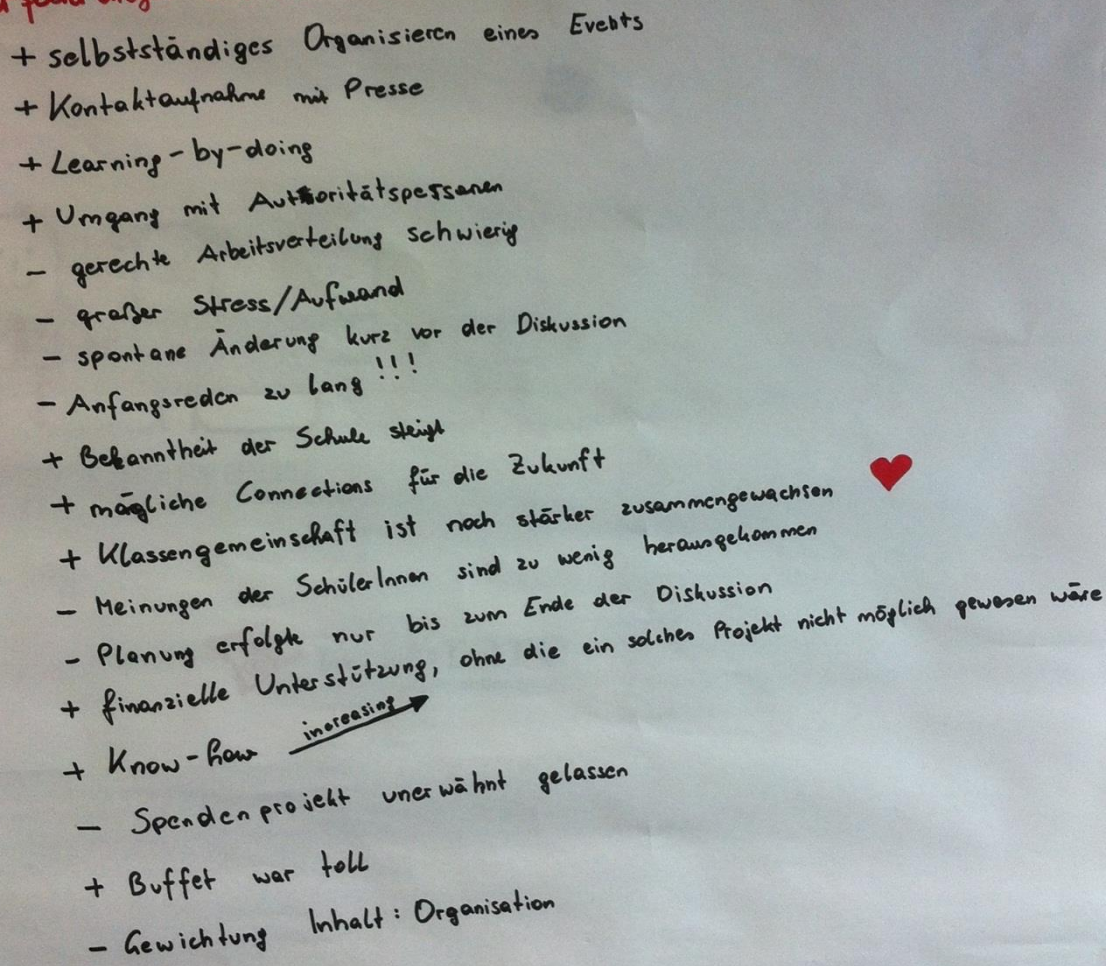 + selbstständiges Organisieren eines Events
+ Kontaktaufnahme mit Presse
+ Learning-by-doing
+ Umgang mit Autoritätspersonen
- gerechte Arbeitsverteilung schwierig
- großer Stress/Aufwand
- spontane Änderung kurz vor der Diskussion
- Anfangsreden zu lang !!!
+ Bekanntheit der Schule steigt
+ mögliche Connections für die Zukunft
+ Klassengemeinschaft ist noch stärker zusammengewachsen ♥
- Meinungen der SchülerInnen sind zu wenig herausgekommen
- Planung erfolgte nur bis zum Ende der Diskussion
+ finanzielle Unterstützung, ohne die ein solches Projekt nicht möglich gewesen wäre
+ Know-how increasing
- Spendenprojekt unerwähnt gelassen
+ Buffet war toll
- Gewichtung Inhalt: Organisation